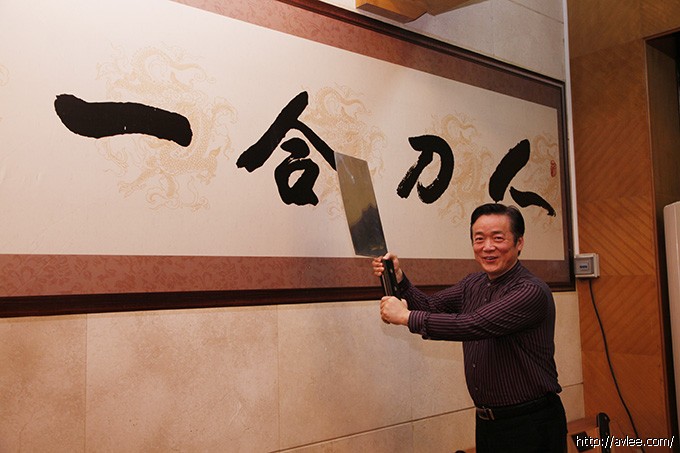 人刀合一
http://avlee.com/